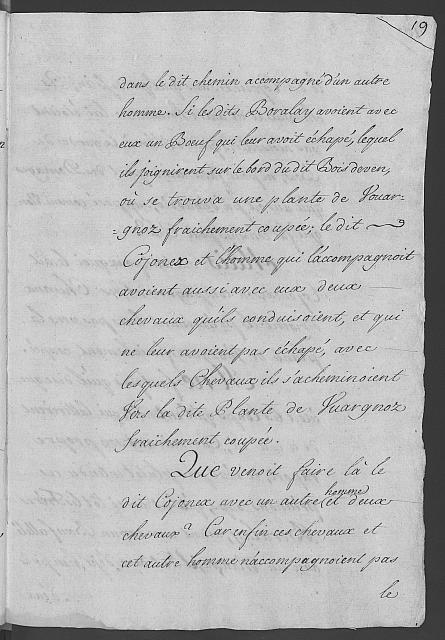 19
dans le dit chemin accompagné d'un autre
homme. Si les dits Boralay avoient avec
eux un Boeuf qui leur avoit échapé, lequel
ils joignirent sur le bord du dit Bois deven,
où se trouva une plante de Vuar=
=gnoz fraichement coupée; le dit
Cojonex et l'homme qui l'accompagnoit
avoient aussi avec eux deux
chevaux qu'ils conduisoient, et qui
ne leur avoient pas échapé, avec
lesquels Chevaux ils s'acheminoient
vers la dite Plante de Vuargnoz
fraichement coupée.
Que venoit faire là le
dit Cojonex avec un autre homme et deux
chevaux? Car enfin ces chevaux et
cet autre homme n'accompagnoient pas
le